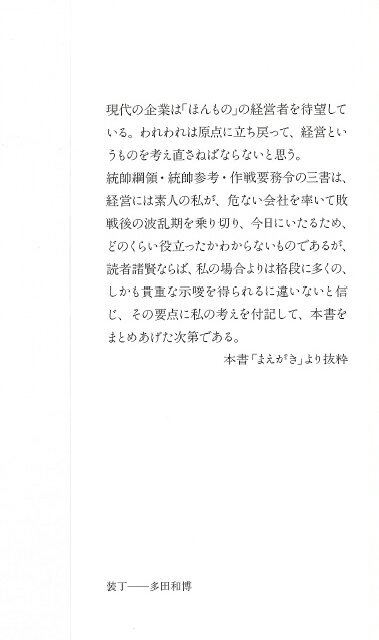 現代の企業は「ほんもの」の経営者を待望して
いる。われわれは原点に立ち戻って、経営とい
うものを考え直さねばならないと思う。
統帥綱領・統帥参考・作戦要務令の三書は、
経営には素人の私が、危ない会社を率いて敗
戦後の波乱期を乗り切り、今日にいたるため、
どのくらい役立ったかわからないものであるが、
読者諸賢ならば、私の場合よりは格段に多くの、
しかも貴重な示唆を得られるに違いないと信
じ、その要点に私の考えを付記して、本書を
まとめあげた次第である。
本書「まえがき」より抜粋
装丁──多田和博